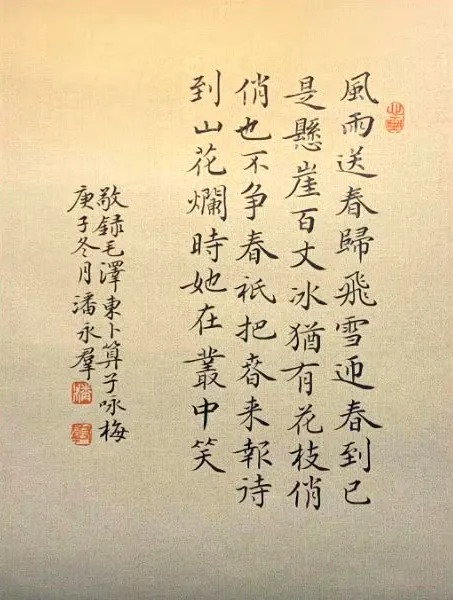 風雨送春歸飛雪迎春到已
是懸崖百丈冰猶有花枝俏
俏也不争春祇把春来報待
到山花爛時她在叢中笑
敬録毛澤東卜算子咏梅
庚子冬月潘永羣